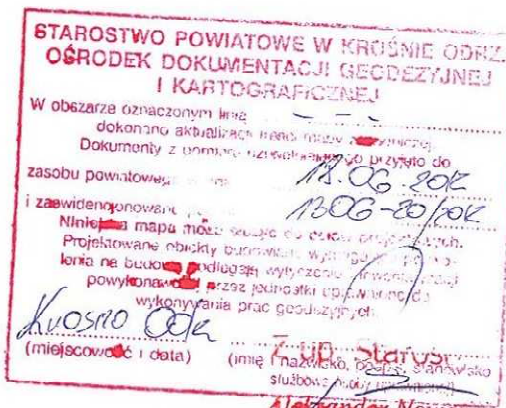 STAROSTWO POWIATOWE W KROŚNIE ODRZ.
OŚRODEK DOKUMENTACJI GEODEZYJNEJ
I KARTOGRAFICZNEJ
W obszarze oznaczonym linią
dokonano aktualizacji treści mapy
Dokumenty z pomiaru przyjęto do
zasobu powiatowego 18.06.2012
i zaewidencjonowano 1306-20/2012
Niniejsza mapa może służyć do celów projektowych.
Projektowane obiekty budowlane
lenia na budowę podlegają wytyczeniu
powykonawczej przez jednostki uprawnione do
wykonywania prac geodezyjnych.
Krosno Odrz
(miejscowość i data)
Z up. Starosty
(imię i nazwisko, podpis, stanowisko
służbowe osoby upoważnionej)
Aleksander